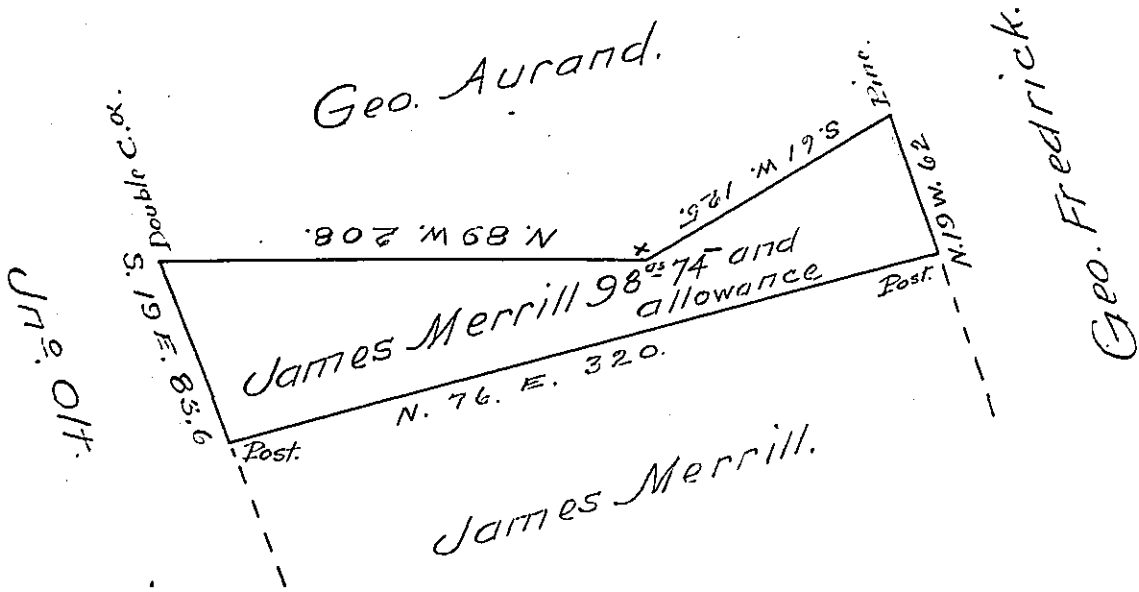 Geo. Aurand.
Geo. Fredrick.
Jnº. Ott.
Double C.O.
Pine.
S. 61 W. 125.
N. 89 W. 208.
x
N. 19 W. 62
S. 19 E. 83,6
James Merrill 98ᵃˢ 74 and
allowance
Post.
N. 76. E. 320.
Post.
James Merrill.